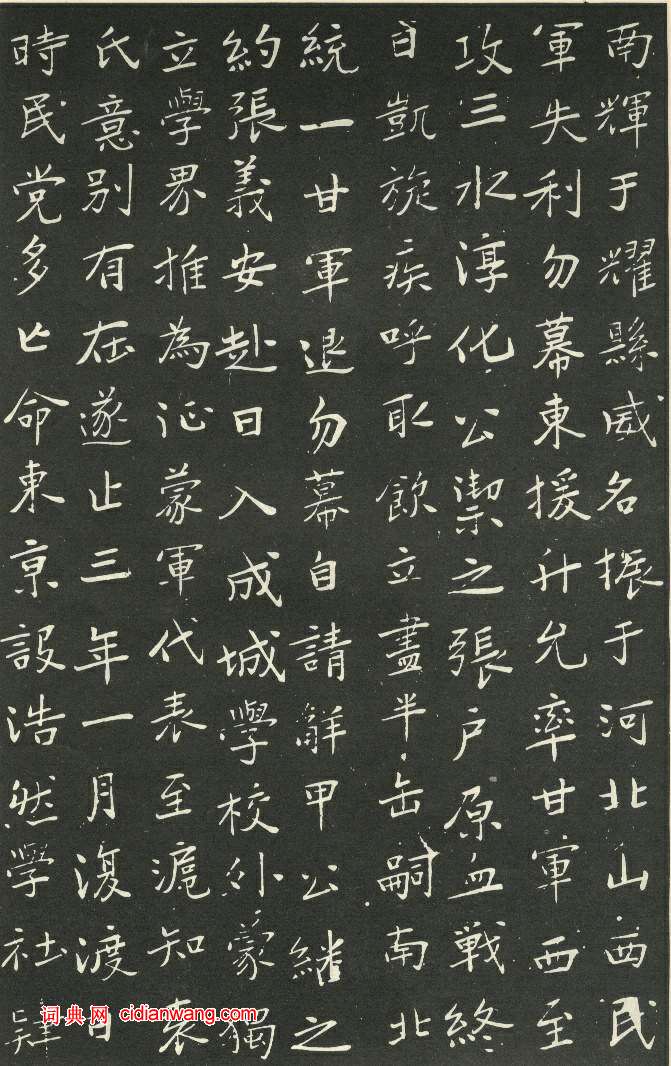 南輝于耀縣威名振于河北山西民
軍失利勿幕東援升允率甘軍西至
攻三水淳化公禦之張户原血戰終
日凱旋疾呼取飲立盡半缶嗣南北
統一甘軍退勿幕自請辭甲公繼之
約張義安赴日入成城學校外蒙獨
立學界推為征蒙軍代表至滬知袁
氏意別有在遂止三年一月復渡日
時民党多亡命東京設浩然學社肄
词典网 cidianwang.com